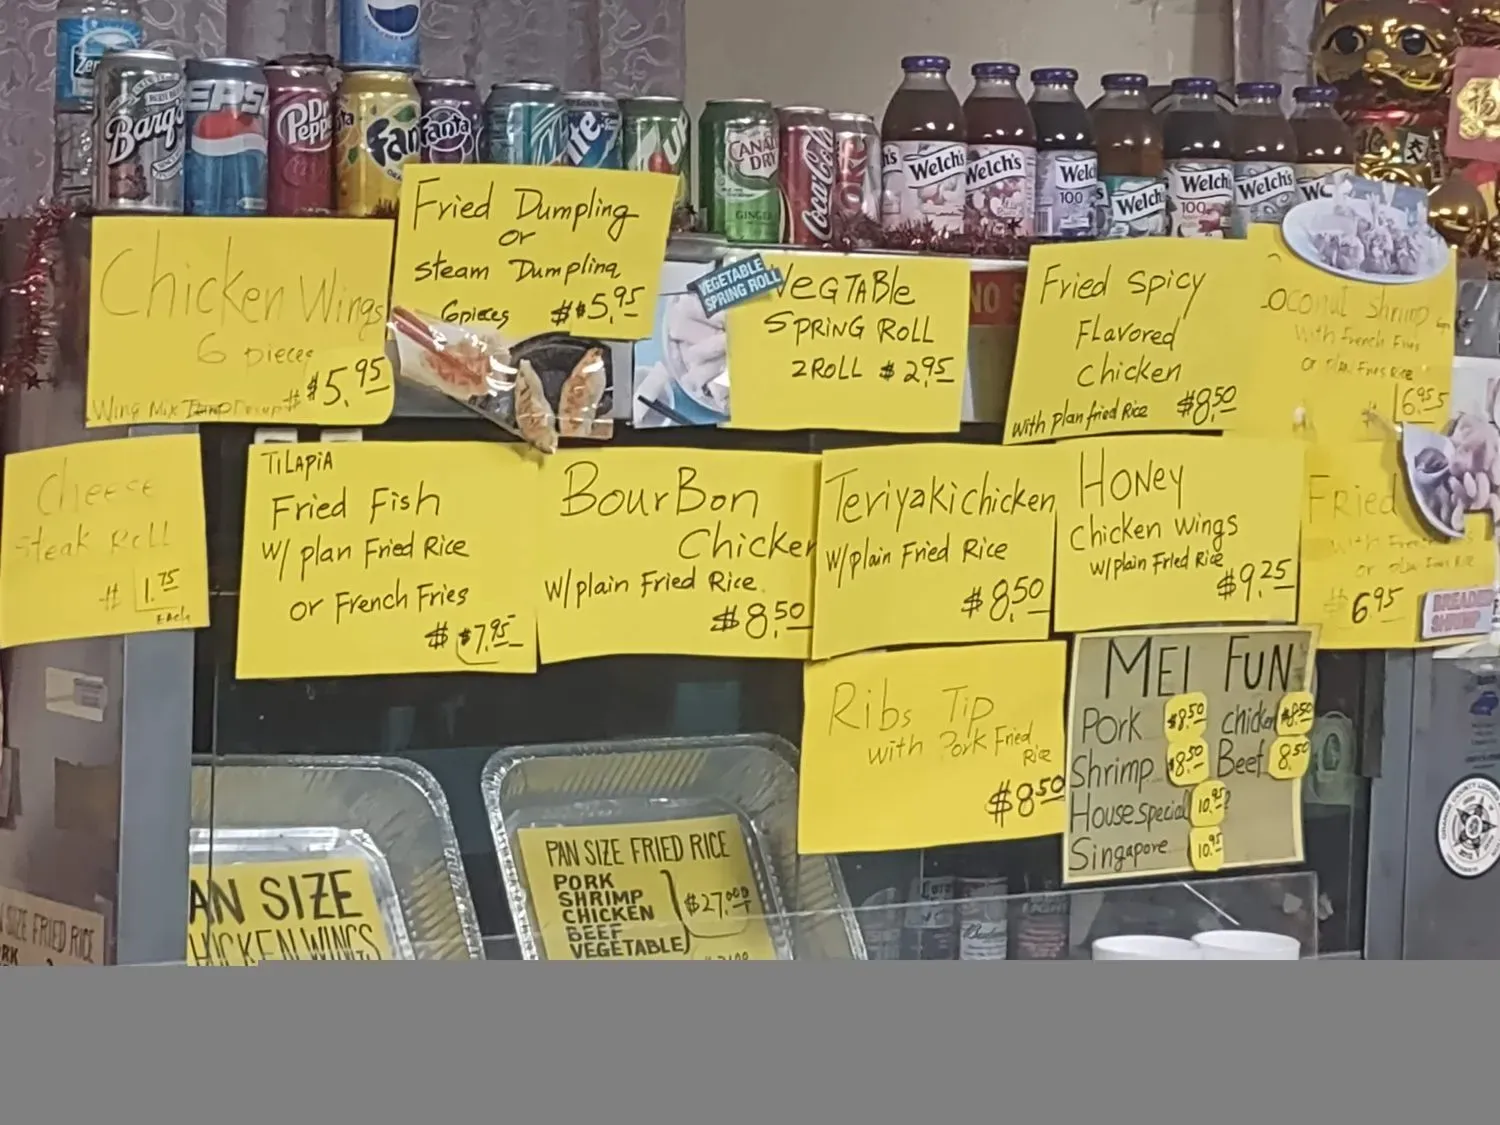 Zer
Barq's
PEPSI
Dr Pepper
Fanta
Fanta
7UP
CANADA DRY
GINGER
Coca-Cola
Welch's
Welch's
Welch
100
Welch
Welch
100
Welch's
福
Chicken Wings
6 pieces
$5.95
Fried Dumpling
or
Steam Dumpling
6pieces $5.95
VEGETABLE
SPRING ROLL
VEGTABLE
SPRING ROLL
2 ROLL $2.95
NO S
Fried Spicy
Flavored
Chicken
with plan fried Rice $8.50
oconut Shrimp
with French Fries
or plan Fries Rice
6.95
Cheese
Steak Roll
$1.75
EACH
TILAPIA
Fried Fish
W/ plan Fried Rice
or French Fries
$7.95
BourBon
Chicken
W/plain Fried Rice
$8.50
Teriyakichicken
W/plain Fried Rice
$8.50
HONEY
Chicken wings
W/plain Fried Rice
$9.25
Fried
$6.95
BREADED
SHRIMP
Ribs Tip
with Pork Fried
Rice
$8.50
MEI FUN
Pork $8.50 chicken $8.50
Shrimp $8.50 Beef 8.50
House special 10.95
Singapore 10.95
AN SIZE
HICKEN WINGS
PAN SIZE FRIED RICE
PORK
SHRIMP
CHICKEN $27.00
BEEF
VEGETABLE
SIZE FRIED RICE
RK